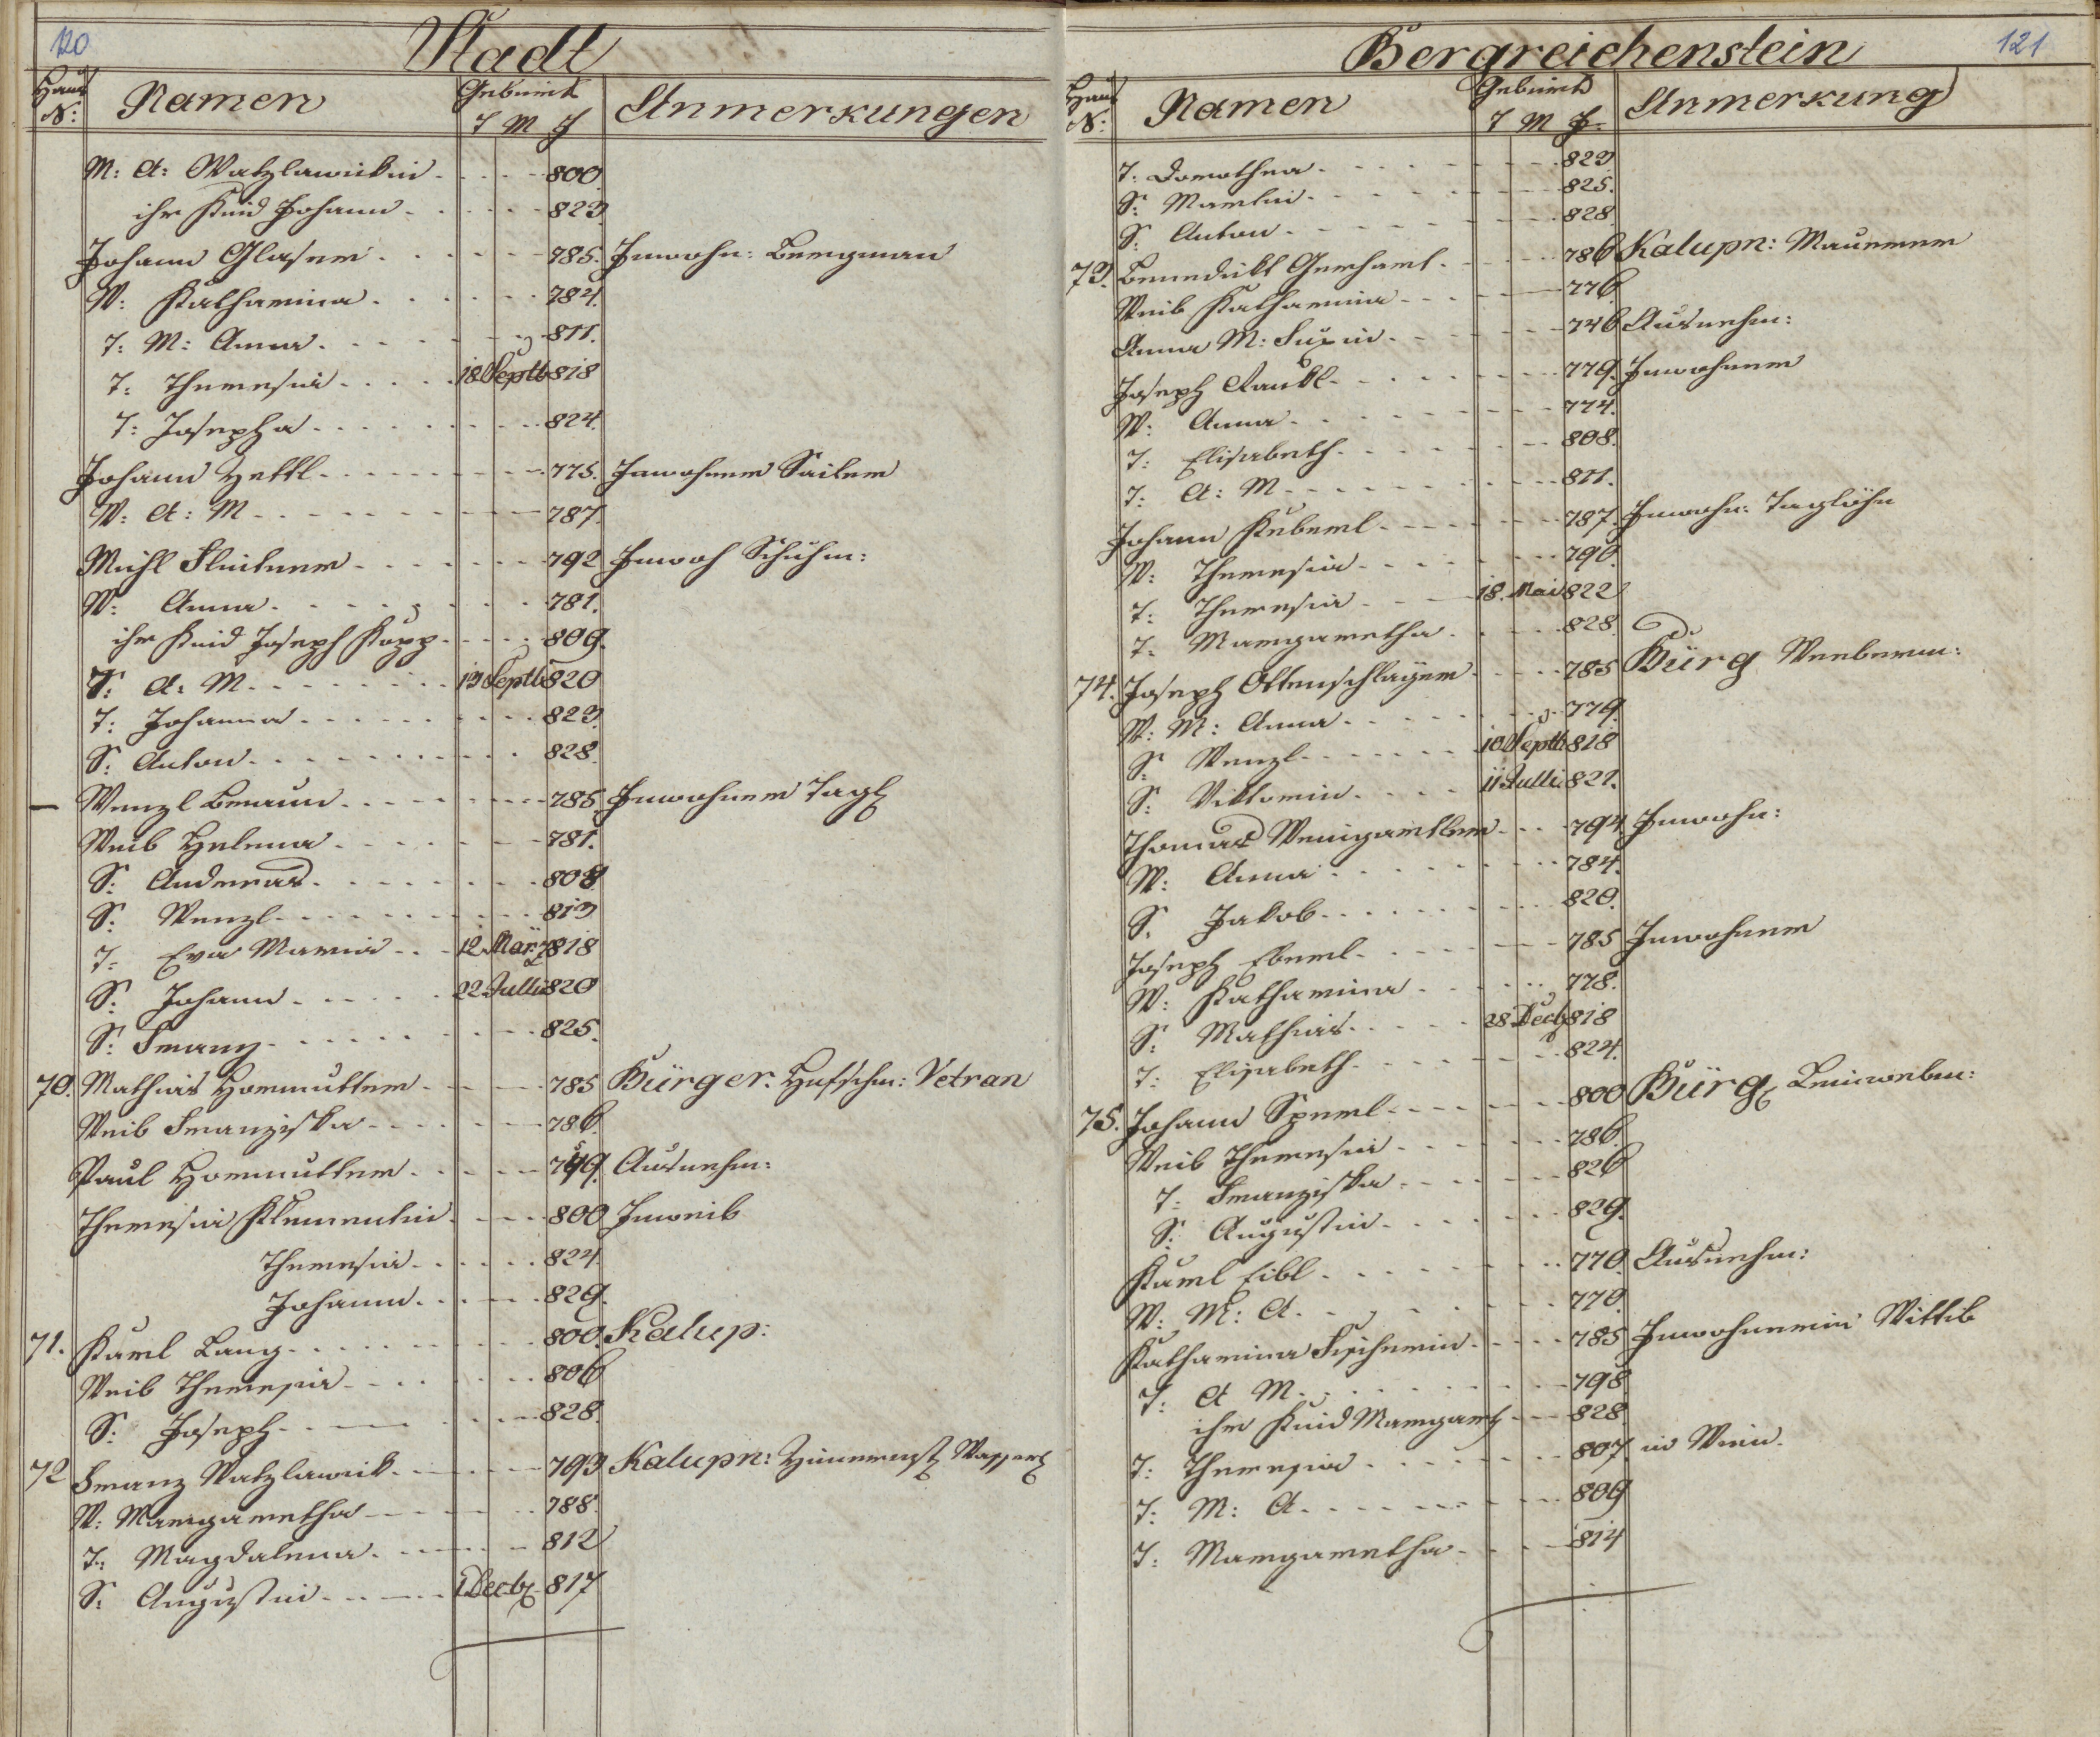 120
Stadt
Haus N: Namen Geburt T M J Anmerkungen
M: A: Watzlawickin 800
ihr Kind Johann 823
Johann Glaser 785. Inwohn: Bergman
W: Katharina 784.
T: M: Anna 811.
T: Theresia 18 Septb 818
T: Josepha 824.
Johann Hekl 775. Inwohner Sailer
W: A: M 787.
Michl 792 Inwoh Schuhm:
W: Anna 781.
ihr Kind Joseph Kopp 809.
T: A: M 13 Septb 820
T: Johanna 823.
S: Anton 828.
Wenzl Beraun 785 Inwohner Tagl
Weib Helena 781.
S: Andreas 808
S: Wenzl 813
T: Eva Maria 12 März 818
S: Johann 22 Julli 820
S: Franz 825.
70. Mathias Hormuttner 785 Bürger: Hufschm: Vetran
Weib Franziska 786.
Paul Hormuttner 749. Ausnehm:
Theresia Klementin 800 Inweib
Theresia 824.
Johann 829.
71. Karl Lang 800. Kalup:
Weib Theresia 806
S: Joseph 828.
72 Franz Watzlawick 793 Kalupn: Zimmerst
W: Margaretha 788.
T: Magdalena 812
S: Augustin 1 Decbr 817
121
Bergreichenstein
Haus N: Namen Geburt T M J. Anmerkung
T: Dorothea 823
S: Martin 825.
S: Anton 828
73. Benedikt Gerhart 786 Kalupn: Maurer
Weib Katharina 776.
Anna M: Fuxin 746 Ausnehm:
Joseph Rankl 779. Inwohner
W: Anna 774.
T: Elisabeth 808.
T: A: M 811.
Johann Kuberl 787. Inwohn: Taglöhn
W: Theresia 790.
T: Theresia 18. Mai 822
T: Margaretha 828.
74. Joseph Ottenschlager 785 Bürg Weberm:
W: M: Anna 779.
S: Wenzl 10 Septb 818
S: Viktorin 11 Julli 821.
Thomas Weingartler 794 Inwohn:
W: Anna 784.
S. Jakob 820.
Joseph Eberl 785 Inwohner
W: Katharina 778.
S: Mathias 28 Decb 818
T: Elisabeth 824.
75. Johann Sperl 800 Bürg Leinweber:
Weib Theresia 786.
T: Franziska 826
S: Augustin 829.
Karl Eibl 770. Ausnehm:
W: M: A. 770.
Katharina Fischerin 785 Inwohnerin Wittib
T: A M. 798
ihr Kind Margareth 828.
T: Theresia 807. in Wien.
T: M: A 809
T: Margaretha 814